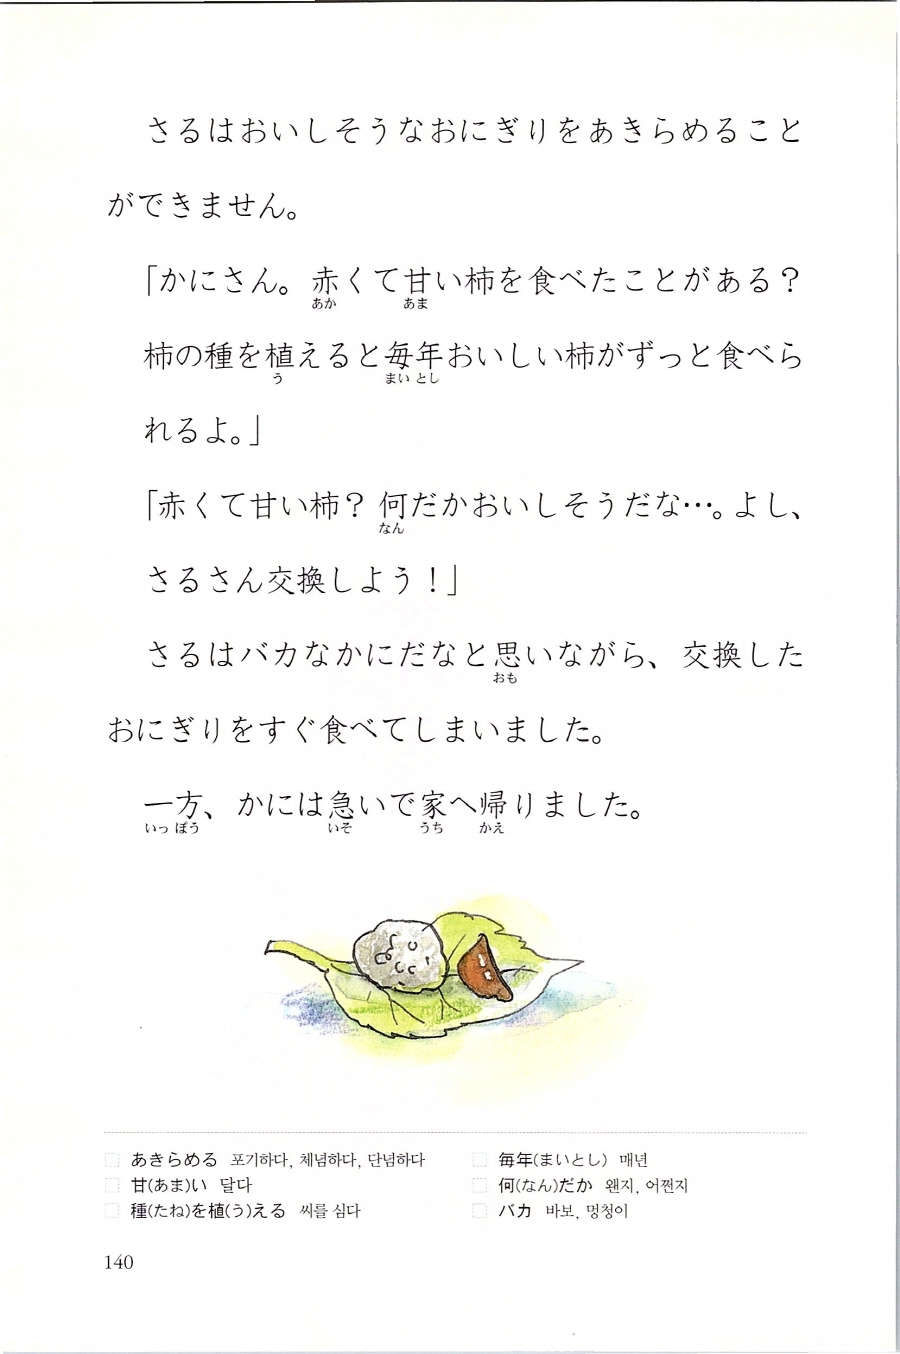 さるはおいしそうなおにぎりをあきらめること
ができません。
「かにさん。赤くて甘い柿を食べたことがある？
あか あま
柿の種を植えると毎年おいしい柿がずっと食べら
う まい とし
れるよ。」
「赤くて甘い柿？ 何だかおいしそうだな…。よし、
なん
さるさん交換しよう！」
さるはバカなかにだなと思いながら、交換した
おも
おにぎりをすぐ食べてしまいました。
一方、かには急いで家へ帰りました。
いっ ぽう いそ うち かえ
あきらめる 포기하다, 체념하다, 단념하다
甘(あま)い 달다
種(たね)を植(う)える 씨를 심다
毎年(まいとし) 매년
何(なん)だか 왠지, 어쩐지
バカ 바보, 멍청이
140